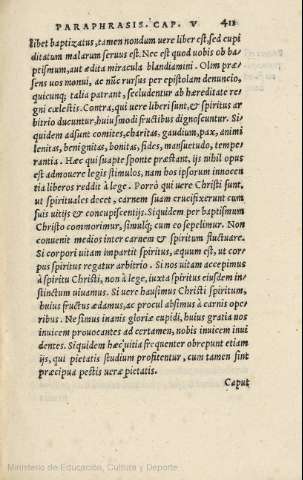 PARAPHRASIS. CAP. V 411
libet baptizatus, tamen nondum uere liber est, sed cupi
ditatum malarum seruus est. Nec est quod uobis ob ba-
ptismum, aut ædita miracula blandiamini. Olim præ-
sens uos monui, ac nũc rursus per epistolam denuncio,
quicunq; talia patrant, secludentur ab hæreditate re-
gni cœlestis. Contra, qui uere liberi sunt, & spiritus ar
bitrio ducuntur, huiusmodi fructibus dignoscuntur. Si-
quidem adsunt comites, charitas, gaudium, pax, animi
lenitas, benignitas, bonitas, fides, mansuetudo, tempe
rantia. Hæc qui suapte sponte præstant, ijs nihil opus
est admouere legis stimulos, nam hos ipsorum innocen
tia liberos reddit à lege. Porrò qui uere Christi sunt,
ut spirituales decet, carnem suam crucifixerunt cum
suis uitijs & concupiscentijs. Siquidem per baptismum
Christo commorimur, simulq; cum eo sepelimur. Non
conuenit medios inter carnem & spiritum fluctuare.
Si corpori uitam impartit spiritus, æquum est, ut cor-
pus spiritus regatur arbitrio. Si nos uitam accepimus
à spiritu Christi, non à lege, iuxta spiritus eiusdem in-
stinctum uiuamus. Si uere hausimus Christi spiritum,
huius fructus ædamus, ac procul absimus à carnis ope
ribus. Ne simus inanis gloriæ cupidi, huius gratia nos
inuicem prouocantes ad certamen, nobis inuicem inui
dentes. Siquidem hæc uitia frequenter obrepunt etiam
ijs, qui pietatis studium profitentur, cum tamen sint
præcipua pestis ueræ pietatis.
Caput
Ministerio de Educación, Cultura y Deporte